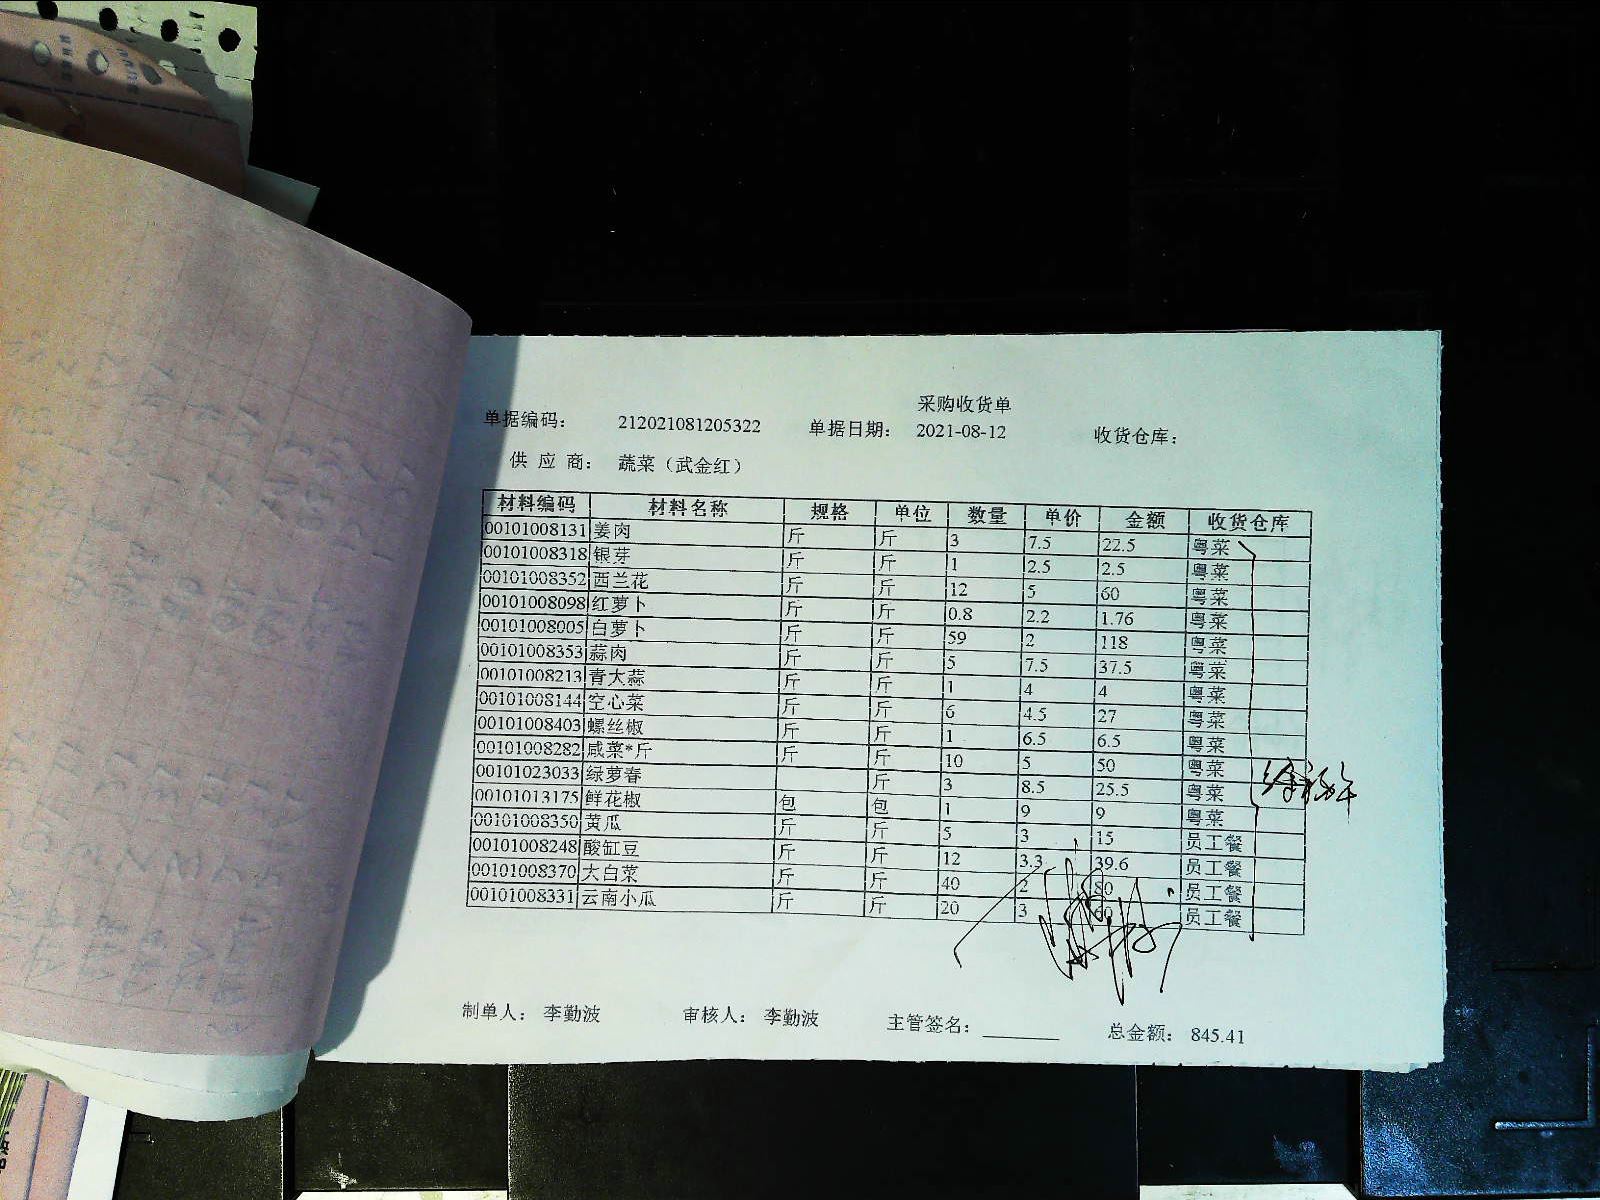 采购收货单
单据编码： 212021081205322 单据日期： 2021-08-12 收货仓库：
供 应 商： 蔬菜（武金红）
材料编码 材料名称 规格 单位 数量 单价 金额 收货仓库
00101008131 姜肉 斤 斤 3 7.5 22.5 粤菜
00101008318 银芽 斤 斤 1 2.5 2.5 粤菜
00101008352 西兰花 斤 斤 12 5 60 粤菜
00101008098 红萝卜 斤 斤 0.8 2.2 1.76 粤菜
00101008005 白萝卜 斤 斤 59 2 118 粤菜
00101008353 蒜肉 斤 斤 5 7.5 37.5 粤菜
00101008213 青大蒜 斤 斤 1 4 4 粤菜
00101008144 空心菜 斤 斤 6 4.5 27 粤菜
00101008403 螺丝椒 斤 斤 1 6.5 6.5 粤菜
00101008282 咸菜*斤 斤 斤 10 5 50 粤菜
00101023033 绿萝春 斤 3 8.5 25.5 粤菜
00101013175 鲜花椒 包 包 1 9 9 粤菜
00101008350 黄瓜 斤 斤 5 3 15 员工餐
00101008248 酸缸豆 斤 斤 12 3.3 39.6 员工餐
00101008370 大白菜 斤 斤 40 2 80 员工餐
00101008331 云南小瓜 斤 斤 20 3 60 员工餐
制单人： 李勤波 审核人： 李勤波 主管签名： 总金额： 845.41